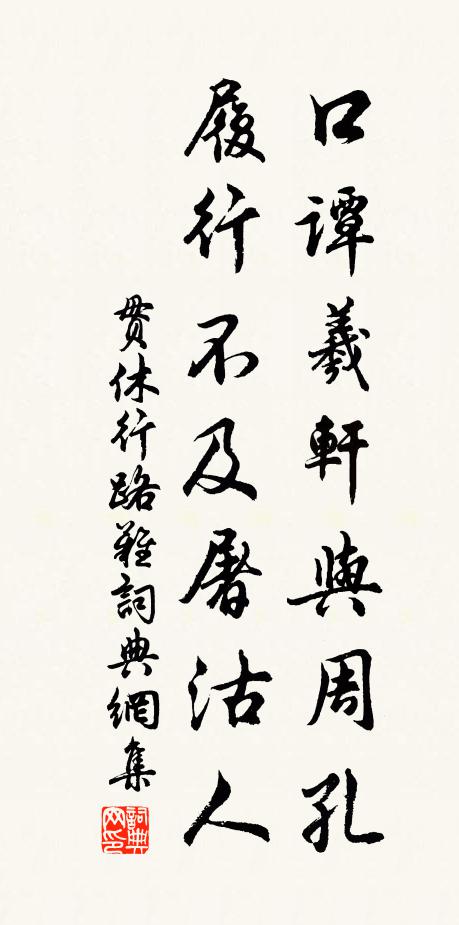 口譚羲軒與周孔
履行不及屠沽人
貫休行路難詞典網集
詞典網印